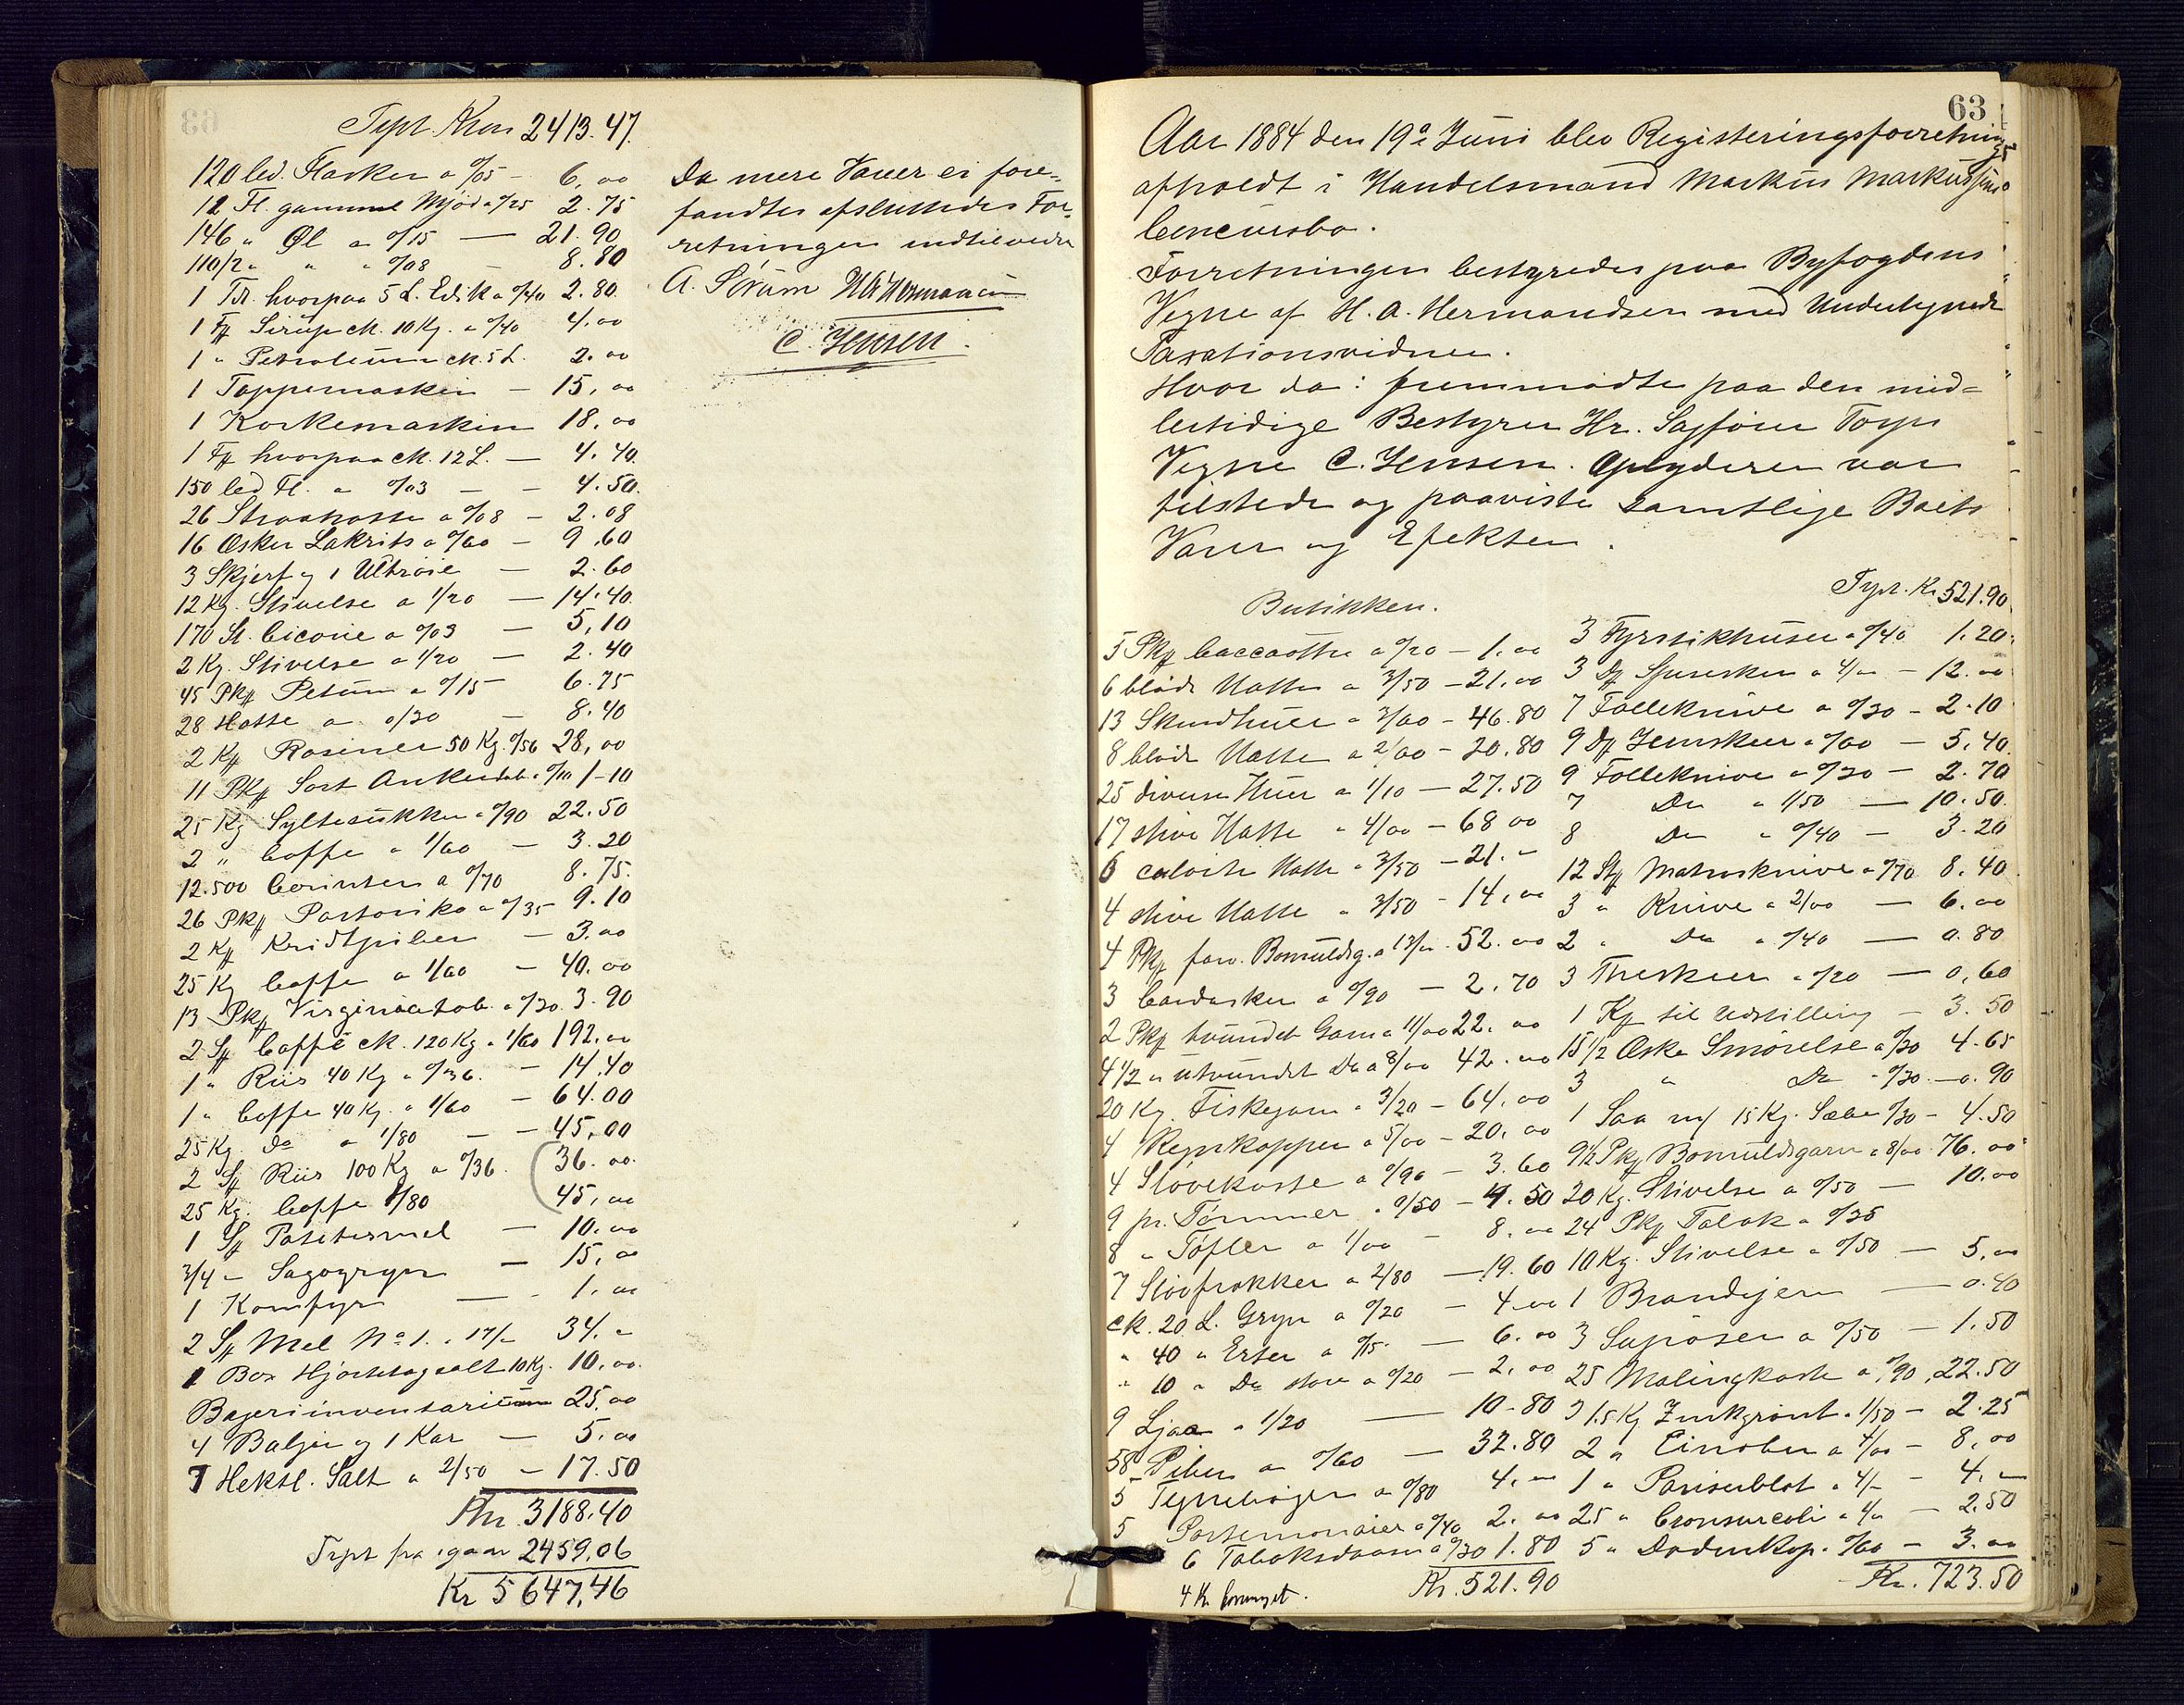 Tspt. Kron 2413.47.
120 led. Flasker a 0/05 - 6,00
12 Fl. gammel Mjød a 0/25 2.75
146 " Øl a 0/15 — 21.90
110/2 " " " 0/08 8.80
1 Td. hvorpaa 5 L. Edik a 0/40 2.80
1 Fj Sirup ck. 10 Kg. a 0/40 4.00
1 " Petroleum ck. 5 L. 2.00
1 Tappemaskin — 15,00
1 Korkemaskin 18,00
1 Fj hvorpaa ck. 12 L. — 4.40.
150 led Fl. a 0/03 — 4.50.
26 Straahatte a 0/08 — 2.08
16 Æsker Lakrits a 0/60 — 9.60
3 Skjerf og 1 Uldtrøie — 2.60
12 Kg. Stivelse a 1/20 — 14.40.
170 St. Cicorie a 0/03 — 5,10
2 Kg. Stivelse a 1/20 — 2.40
45 Pkj Petum a 0/15 — 6.75
28 Hatte a 0/30 — 8.40
2 Kj Rosiner 50 Kg. 0/56 28,00
11 Pkj Sort Ankertob. a 0/10 1-10
25 Kg Syltesukker a 0/90 22.50
2 " Coffe a 1/60 — 3.20
12.500 Corinter a 0/70 8.75.
26 Pkj Portoriko a 0/35 9.10
2 Kj Kridtpiber — 3.00
25 Kg Coffe a 1/60 — 40.00
13 Pkj Virginiatob. a 0/30. 3.90
2 Sj Coffe ck. 120 Kg a 1/60 192.00
1 " Riis 40 Kg a 0/36. — 14.40
1 " Coffe 40 Kg. a 1/60 — 64.00
25 Kg. Do a 1/80 — 45,00
2 Sj Riis 100 Kg a 0/36. 36.00.
25 Kg. Coffe 1/80 45,00
1 Sj Potetesmel — 10.00
3/4 " Sagogryn — 15,00
1 Komfyr — 1.00
2 Sj Mel No 1. a 17/- 34.-
1 Box Hjortetagsalt 10 Kg. 10,00.
Bageriinventarium 25,00
4 Baljer og 1 Kar — 5.00
7 Hektl. Salt a 2/50 — 17.50
Kr. 3188.40
Trpt fra igaar 2459,06
Kr 5647,46
Da mere Varer ei fore-
fandtes afsluttedes For-
retningen indtilvidere
A. Sørum HAHermansen
C. Jensen.
63
Aar 1884 den 19de Juni blev Registeringsforretning
afholdt i Handelsmand Markus Markussens
Concursbo.
Forretningen bestyredes paa Byfogdens
Vegne af H. A. Hermandsen med Undertegnede
Taxationsvidner.
Hvor da: fremmødte paa den mid-
lertidige Bestyrer Hr. Sagfører Torps
Vegne C. Jensen. Opbyderen var
tilstede og paaviste samtlige Boets
Varer og Efekter.
Butikken.
5 Pkj a 0/20 — 1.00
6 bløde Hatte a 3/50 — 21.00
13 Skindhuer a 3/60 — 46.80
8 bløde Hatte a 2/60 — 20.80
25 diverse Huer a 1/10 — 27.50
17 stive Hatte a 4/00 — 68 00
6 Hatte a 3/50 — 21.-
4 stive Hatte a 3/50 — 14.00
4 Pkj farv. Bomuldsg. a 13/- 52.00
3 a 0/90 — 2.70
2 Pkj tvundet Garn a 11/00 22.00
4 1/2 " utvundet Do a 42.00
20 Kg. Fiskegarn a 3/20 — 64.00
4 Regnkapper a 5/00 — 20.00
4 Støvekoste a 0/90 — 3.60
9 pr. Tømmer a 0/50 — 4.50
8 " Tøfler a 1/00 — 8.00
7 Støvfrakker a 2/80 — 19.60
ck. 20 L. Gryn a 0/20 — 4.00
" 40 " Erter a 0/15. — 6.00
" 10 " Do store a 0/20 — 2.00
9 Ljaa a 1/20 — 10-80
58 Piber a 0/60 — 32.80
5 Tegnebøger a 0/80 4.00
5 Portemonaier a 0/40 2.00
6 Tobaksdaaser a 0/30 1.80
Kr. 521.90
Tspt. Kr 521.90
3 Fyrstikhuser a 0/40 1.20.
3 Dj Speseskeer a 4/- — 12.00
7 Folleknive a 0/30 — 2.10
9 Dj a 0/60 — 5.40.
9 Folleknive a 0/30 — 2.70
7 Do a 1/50 — 10.50.
8 Do a 0/40 — 3.20
12 St Matrosknive a 0/70 8.40
3 " Knive a 2/00 — 6.00
2 " Do a 0/40 — 0.80
3 Theskeer a 0/20 — 0,60
1 Kj til Udstilling — 3.50
15 1/2 Æske Smørelse a 0/30 4.65
3 " Do a 0/30 — 0.90
1 Saa m/ 15 Kg. Sæbe 0/30 — 4.50
9 1/2 Pkj Bomuldsgarn a 8/00 76.00
20 Kg. Stivelse a 0/50 — 10.00
24 Pkj Tobak a 0/25
10 Kg. Stivelse a 0/50 — 5.00
1 Brandejern — 0.40
3 a 0/50 — 1.50
25 Malingkoste a 0/90, 22.50
1.5 Kg Zinkgrønt a 1/50 — 2.25
2 " Cinober a 4/00 — 8,00
1 " Pariserblot a 4/- — 4.-
25 " — 2.50
5 " Dodenkop a 0/60 — 3.00
Kr. 723.50